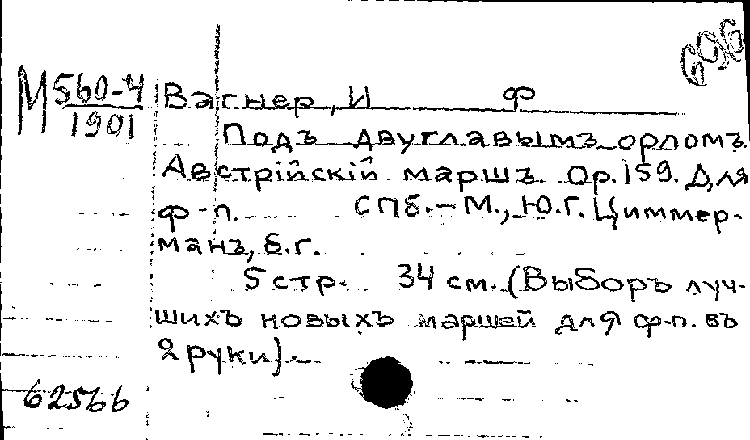 696
М 560-4
1901
Вагнер, И Ф
Подъ двуглавымъ орломъ.
Австрійскій маршъ. Ор. 159. Для
ф-п. СПб.-М., Ю.Г. Циммер-
манъ, б.г.
5 стр. 34 см. (Выборъ луч-
шихъ новыхъ маршей для ф-п. въ
2 руки).
62566